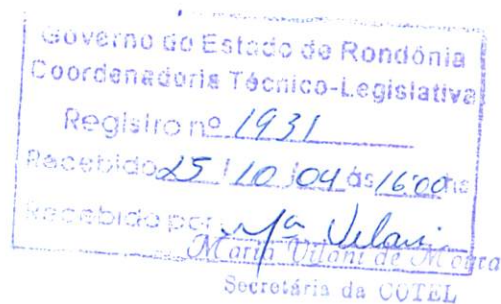 Governo do Estado de Rondônia
Coordenadoria Técnico-Legislativa
Registro nº 1931
Recebido 25 / 10 / 04 às 16:00 hs
Recebido por Mª Vilani
Maria Vilani de Moura
Secretária da COTEL